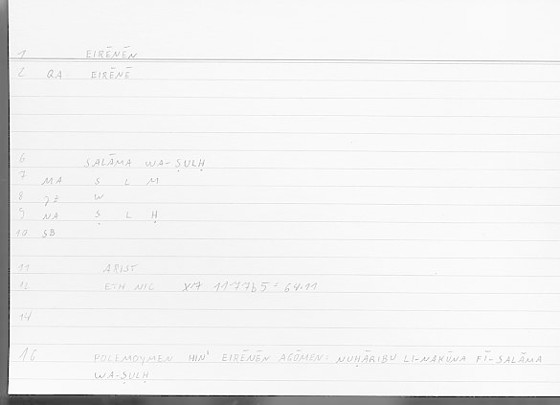 1 EIRĒNĒN
2 QA EIRĒNĒ
6 SALĀMA WA-ṢULḤ
7 MA S L M
8 JE W
9 NA Ṣ L Ḥ
10 SB
11 ARIST
12 ETH NIC X.7 1177b5 = 64.11
14
16 POLEMOYMEN HIN' EIRĒNĒN AGŌMEN: NUḤĀRIBU LI-NAKŪNA FĪ-SALĀMA
WA-ṢULḤ